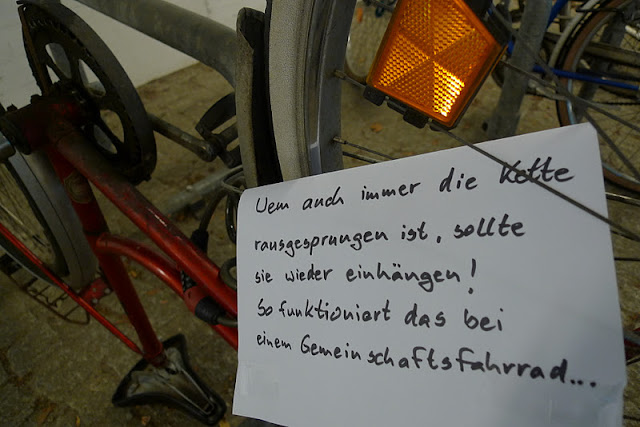 Wem auch immer die Kette
rausgesprungen ist, sollte
sie wieder einhängen!
So funktioniert das bei
einem Gemeinschaftsfahrrad...